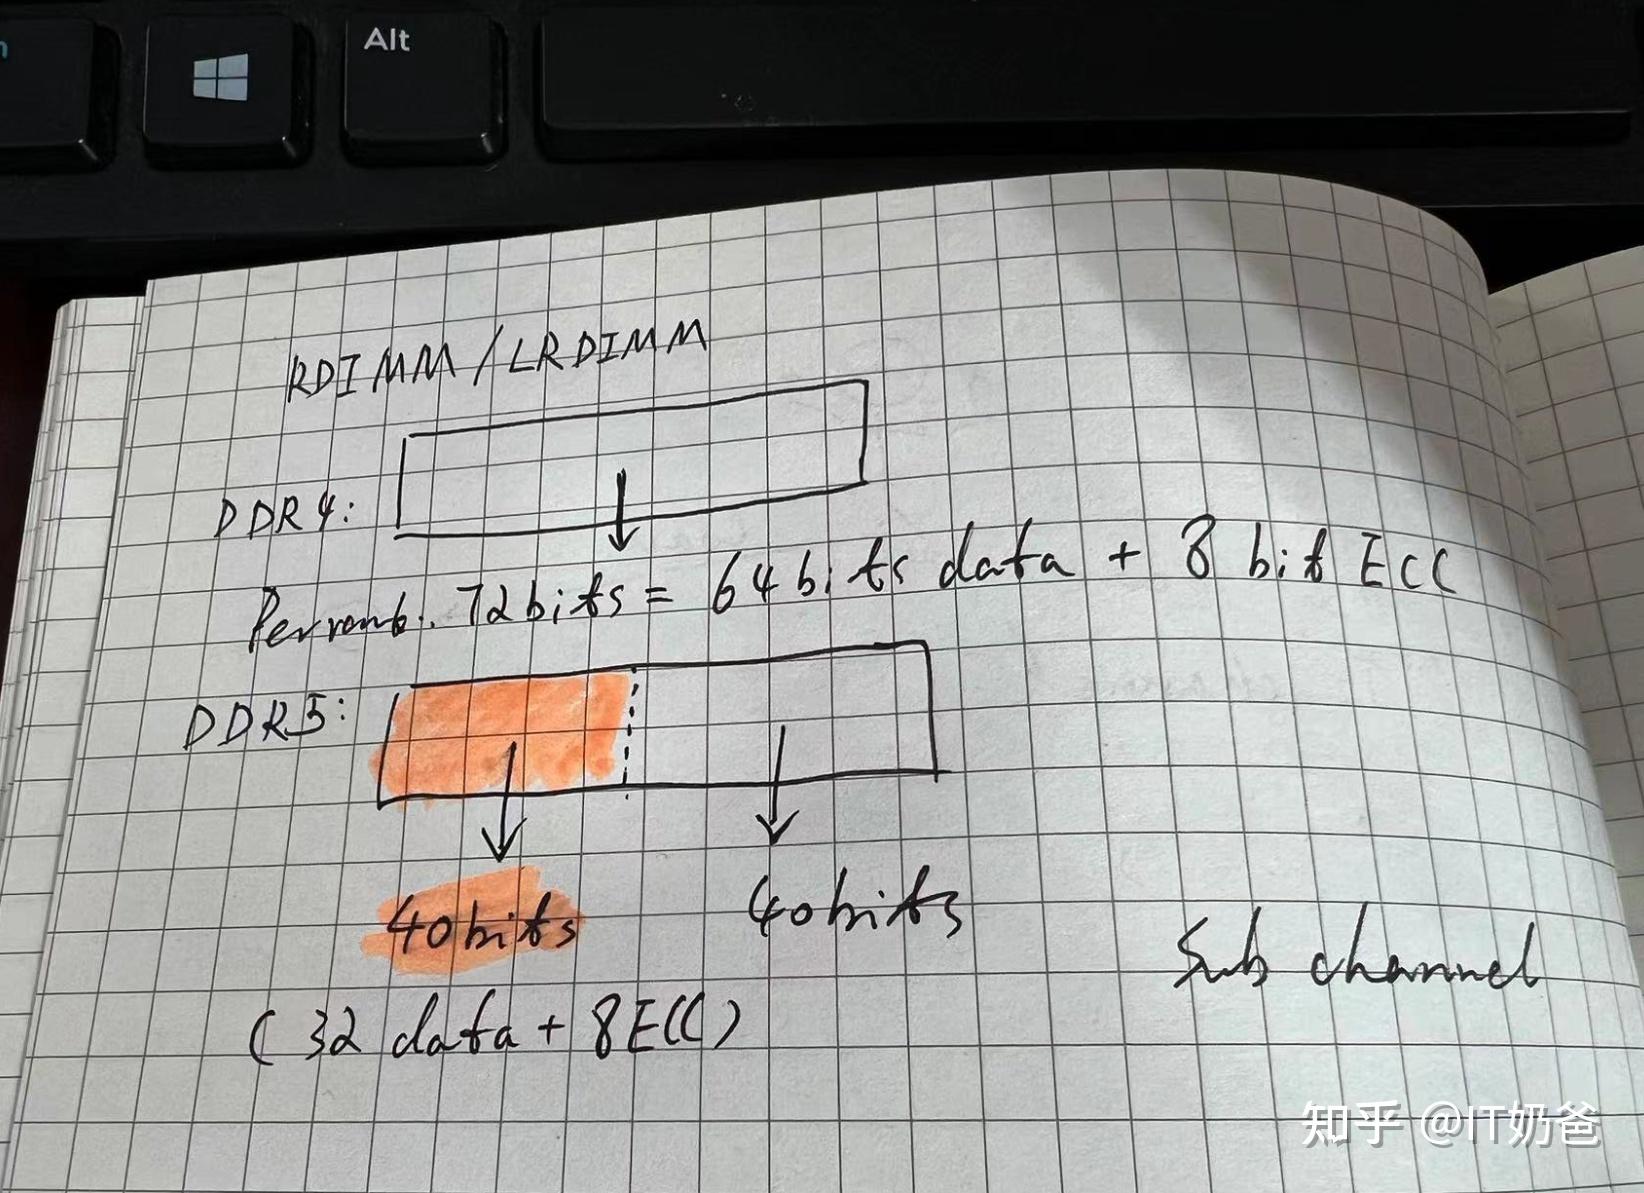 Alt
RDIMM/LRDIMM
DDR4:
Per rank. 72bits = 64bits data + 8 bit ECC
DDR5:
40bits 40bits
(32 data + 8ECC)
Sub channel
知乎 @IT奶爸